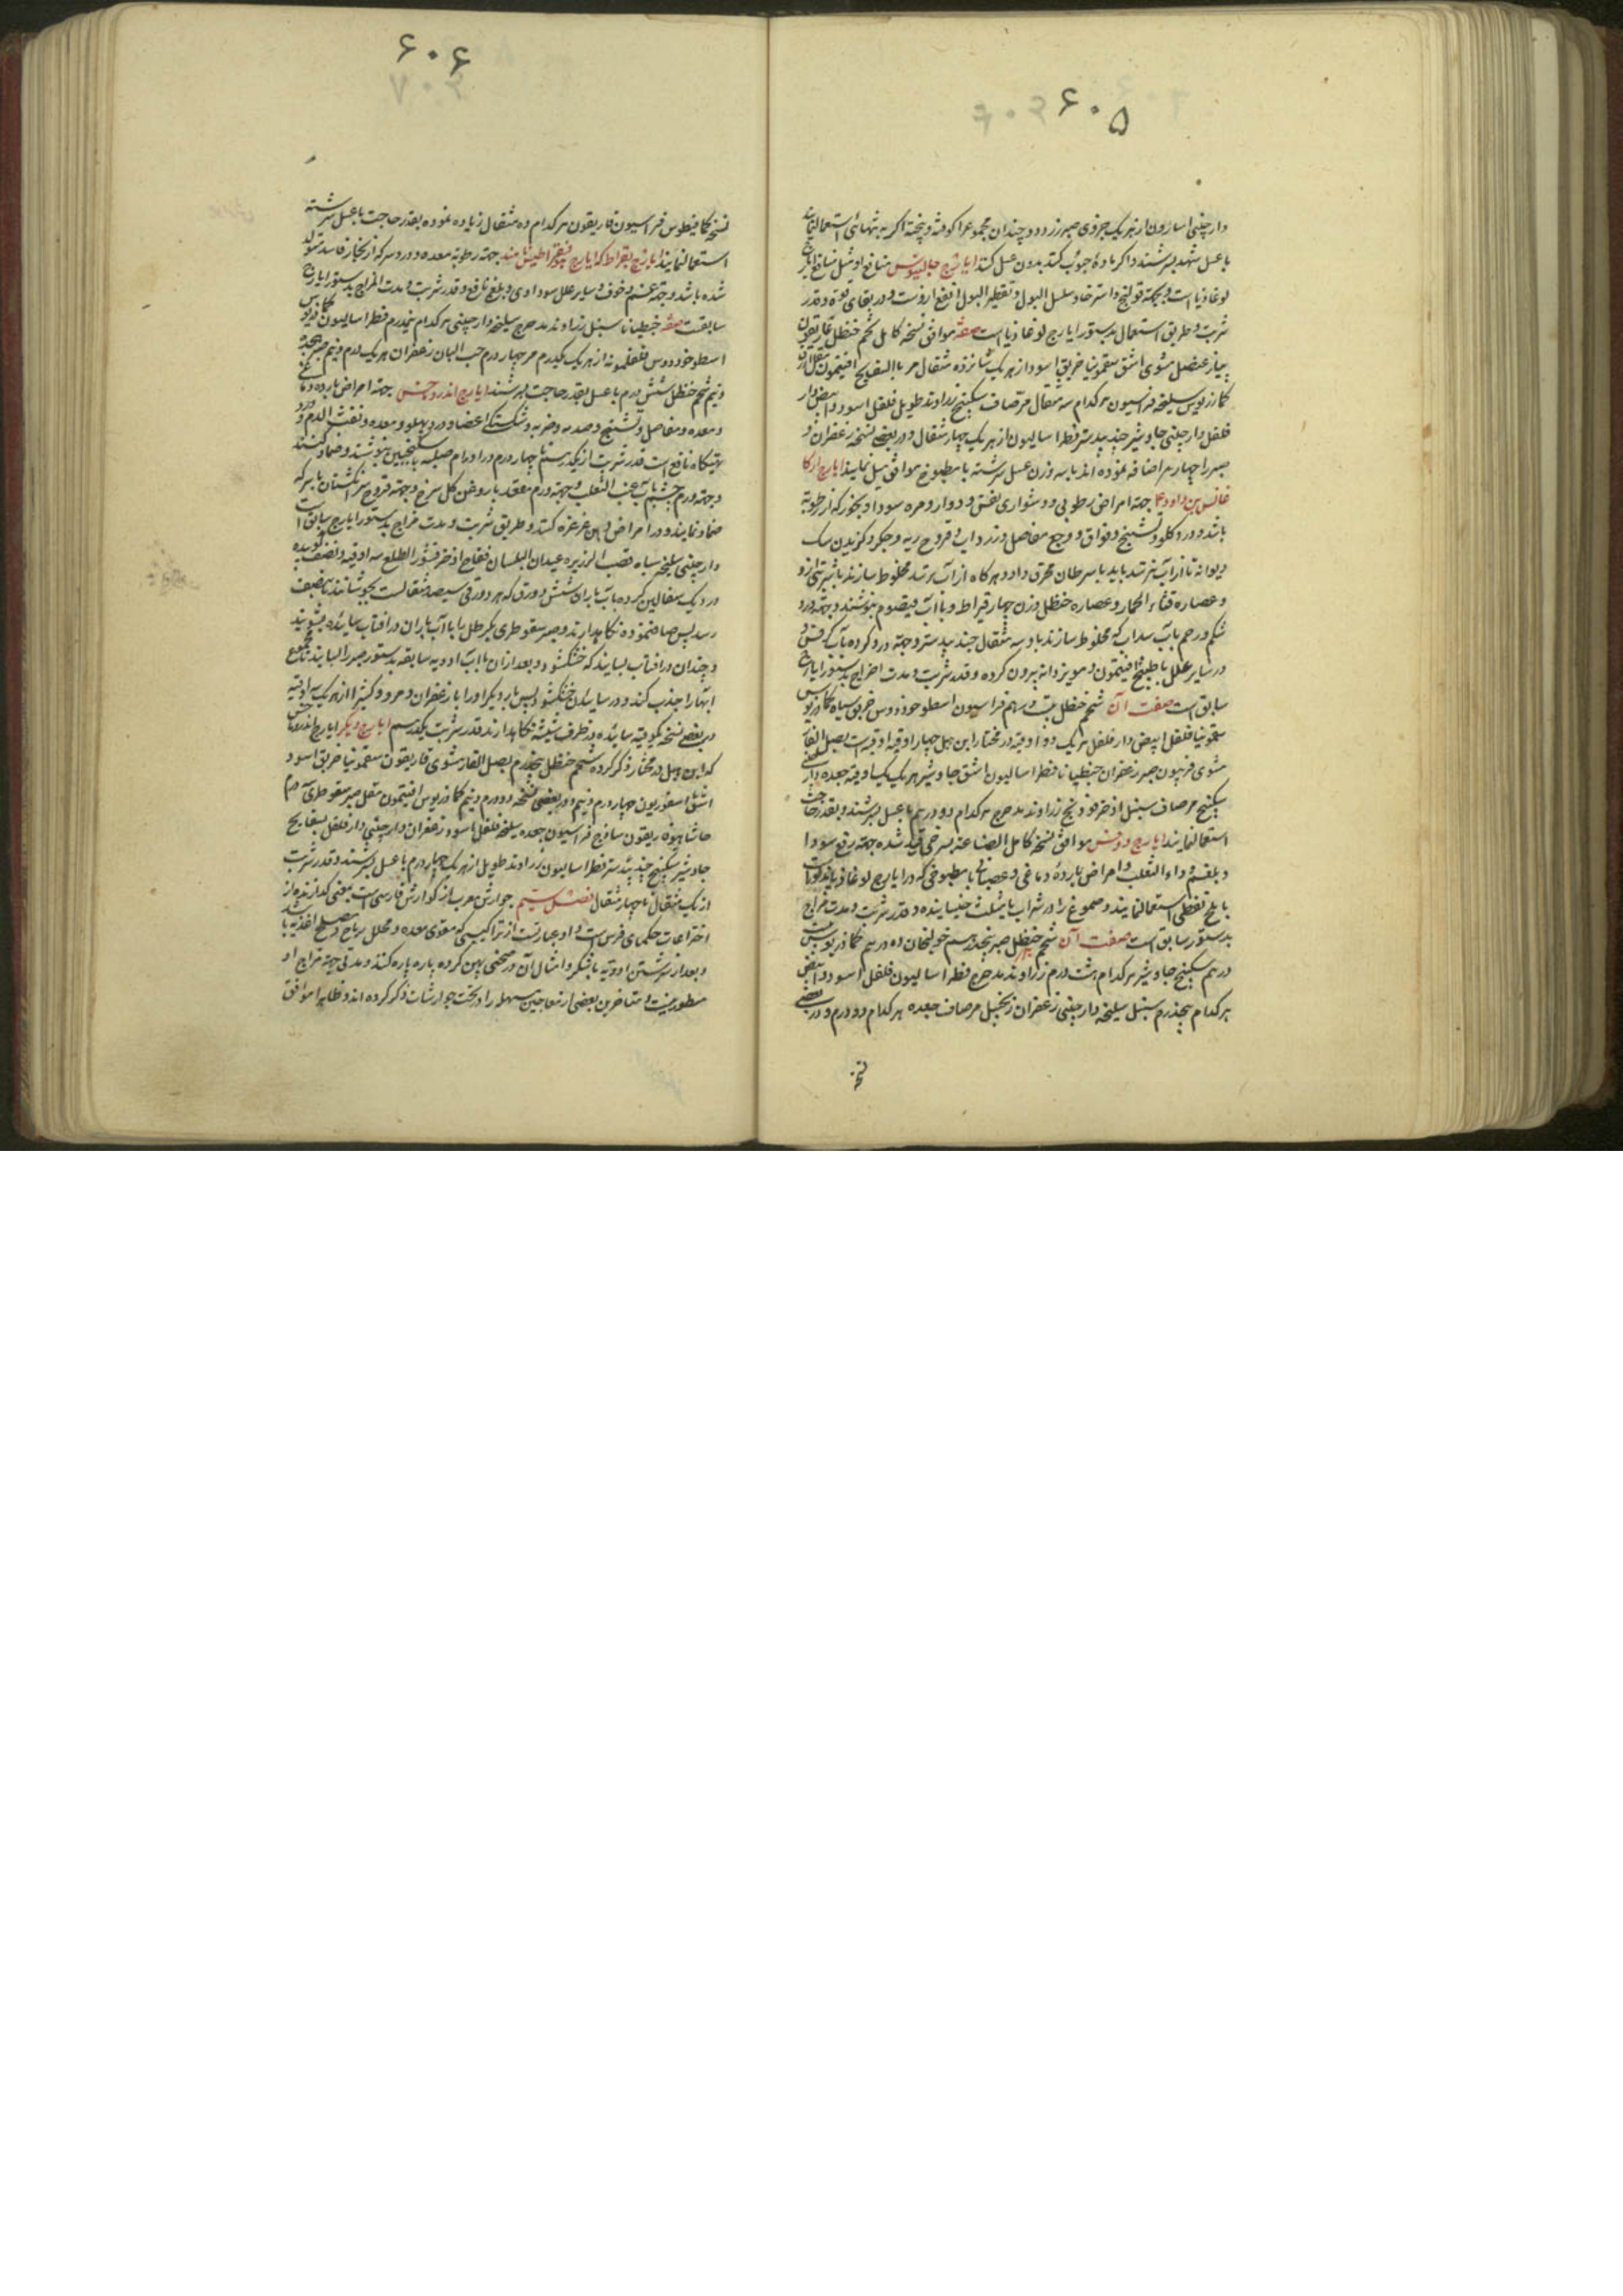 ۶۰۵
دارچینی اسارون از هر یک جزوی صبر زرد دو چندان مجموع را کوفته و بیخته اکر به تنهائی استعمال نمایند
با عسل شهد بسرشند و اکر با دوا حبوب کنند بدون عسل کنند ایارج جالینوس منافع او مثل منافع ایارج
لوغاذیا است و بجهته قولنج و استرخا و سلس البول و تقطیر البول انفع ازوست و در بقای قوة و قدر
شربت و طریق استعمال بدستور ایارج لوغاذیا است صفته موافق نسخه کامل شحم حنظل غاریقون
پیاز عنصل مشوی اشق سقمونیا خربق اسود از هر یک شانزده مثقال
کمادریوس سلیخه فراسیون هر کدام سه مثقال مر صاف سکبینج زراوند طویل فلفل اسود و ابیض دار
فلفل دارچینی جاوشیر جندبیدستر فطراسالیون از هر یک چهار مثقال و در بعضی نسخه زعفران و
صبر را چهار درم اضافه نموده اند با سه وزن عسل سرشته با مطبوخ موافق میل نمایند ایارج ارکا
غانیس بن داود جهته امراض رطوبی و دشواری نفس و دوار و مره سودا و بخور که از رطوبة
باشد و درد کلو و تشنج و فواق و وجع مفاصل و زرداب و قروح ریه و جکر و کزیدن سک
دیوانه تا از آب نترسد باید با سرطان محرق داد و هر کاه از آب ترسد مخلوط سازند
و عصاره قثاء الحمار و عصاره حنظل وزن چهار قیراط و با آب قیصوم بنوشند و جهته درد
شکم و رحم باب سداب که مخلوط سازند با دو سه مثقال جندبیدستر و جهته درد کرده باب کرفس و
در سایر علل با طبیخ افتیمون و مویز دانه بیرون کرده و قدر شربت و مدت اخراج بدستور ایارج
سابق است صفت آن شحم حنظل بیست درهم فراسیون اسطوخودوس خربق سیاه کمادریوس
سقمونیا فلفل ابیض دار فلفل هر یک دو اوقیه در مختار ابن هبل چهار اوقیه اوقیه است بصل الفار
مشوی فربیون صبر زعفران جنطیانا فطراسالیون اشق جاوشیر هر یک یک اوقیه جعده دارچینی
سکبینج مر صاف سنبل اذخر فودنج زراوند مدحرج هر کدام دو درهم با عسل بسرشند و بقدر حاجت
استعمال نمایند ایارج روفس موافق نسخه کامل الصناعته بسرخی قید شده جهته رفع سودا
و بلغم و داء الثعلب و امراض بارده دماغی و عصبانی با مطبوخی که در ایارج لوغاذیا مذکور است
با ملح نفطی استعمال نمایند و صموغ را در شراب یا مثلث خیسانیده و قدر شربت و مدت مزاج
بدستور سابق است صفت آن شحم حنظل صبر پنج درهم خولنجان ده درهم کمادریوس بیست
درهم سکبینج جاوشیر هر کدام هشت درم زراوند مدحرج فطراسالیون فلفل اسود و ابیض
هر کدام پنجدرم سنبل سلیخه دارچینی زعفران زنجبیل مر صاف جعده هر کدام دو درم و در بعضی
نسخه
۶۰۶
نسخه کمافیطوس فراسیون غاریقون هر کدام ده مثقال زیاده نموده بقدر حاجت با عسل سرشته
استعمال نمایند ایارج بقراط که ایارج نامند جهته رطوبة معده و درد سر که از بخار فاسد متولد
شده باشد و جهته غم و خوف و سایر علل سوداوی و بلغم نافع و قدر شربت و مدت المزاج بدستور ایارج
سابقست صفته جنطیانا سنبل زراوند مدحرج سلیخه دارچینی هر کدام پنجدرم فطراسالیون کمادریوس
اسطوخودوس فلفلمویه از هر یک یکدرم مر چهار درم حب البان زعفران هر یک درم و نیم صبر هجده
و نیم شحم حنظل شش درم با عسل بقدر حاجت بسرشند ایارج اندروخس جهته امراض بارده دماغی
و معده و مفاصل و تشنج و صدمه و ضربه و شکستکی اعضا و درد پهلو و معده و نفث الدم و درد
تهیکاه نافع است قدر شربت از یکدرهم تا چهار درم و در اورام صلبه با سکنجبین بنوشند و ضماد کنند
و جهته ورم چشم باب عنب الثعلب و جهته ورم مقعد با روغن کل سرخ و جهته قروح سر انکشتان با سرکه
ضماد نمایند و در امراض دهن غرغره کنند و طریق شربت و مدت مزاج بدستور ایارج سابق است
دارچینی سلیخه سیاه قصب الذریره عیدان البلسان فقاح اذخر قشور الطلع سه اوقیه و نصف کوبیده
در دیک سفالین کرده باب باران شش دورق که هر دورقی سیصد مثقالست بجوشانند تا بنصف
رسد پس صاف نموده نکاهدارند و صبر سقوطری یکرطل را با آب باران در افتاب سائیده بشویند
و چندان در افتاب بسایند که خشک شود و بعد از ان با آب ادویه سابقه بدستور صبر را بسایند تا مجموع
ابها را جذب کند و در سایه آن خشک شود پس بار دیکر او را با زعفران و مر و کتیرا از هر یک سه اوقیه
در بعضی نسخه یکوقیه سائیده در ظرف شیشه نکاهدارند قدر شربت یکدرهم ایارج دیکر ایارج اندروماخس
که ابن هبل در مختار ذکر کرده شحم حنظل پنجدرم بصل الفار مشوی غاریقون سقمونیا خربق اسود
اشق اسقوردیون چهار درم و نیم و در بعضی نسخه دو درم و نیم کمادریوس افتیمون مقل صبر سقوطری
حاشا ساذج فراسیون جعده سلیخه فلفل اسود زعفران دارچینی دار فلفل بسفایج
جاوشیر سکبینج جندبیدستر فطراسالیون زراوند طویل از هر یک چهار درم با عسل بسرشند و قدر شربت
از یک مثقال تا چهار مثقال فصل ششم جوارش معرب از کوارش فارسی است بمعنی کدازنده از
اختراعات حکمای فرس است و او عبارتست از تراکیبی که مقوی معده و محلل ریاح و مصلح اغذیه باشد
و بعد از سرشتن ادویه با شکر و امثال آن در صحنی پهن کرده پاره پاره کنند و مدتی جهته مزاج او
منظور نیست و متاخرین بعضی از معاجین مسهله را در تحت جوارشات ذکر کرده اند و ظاهرا موافق